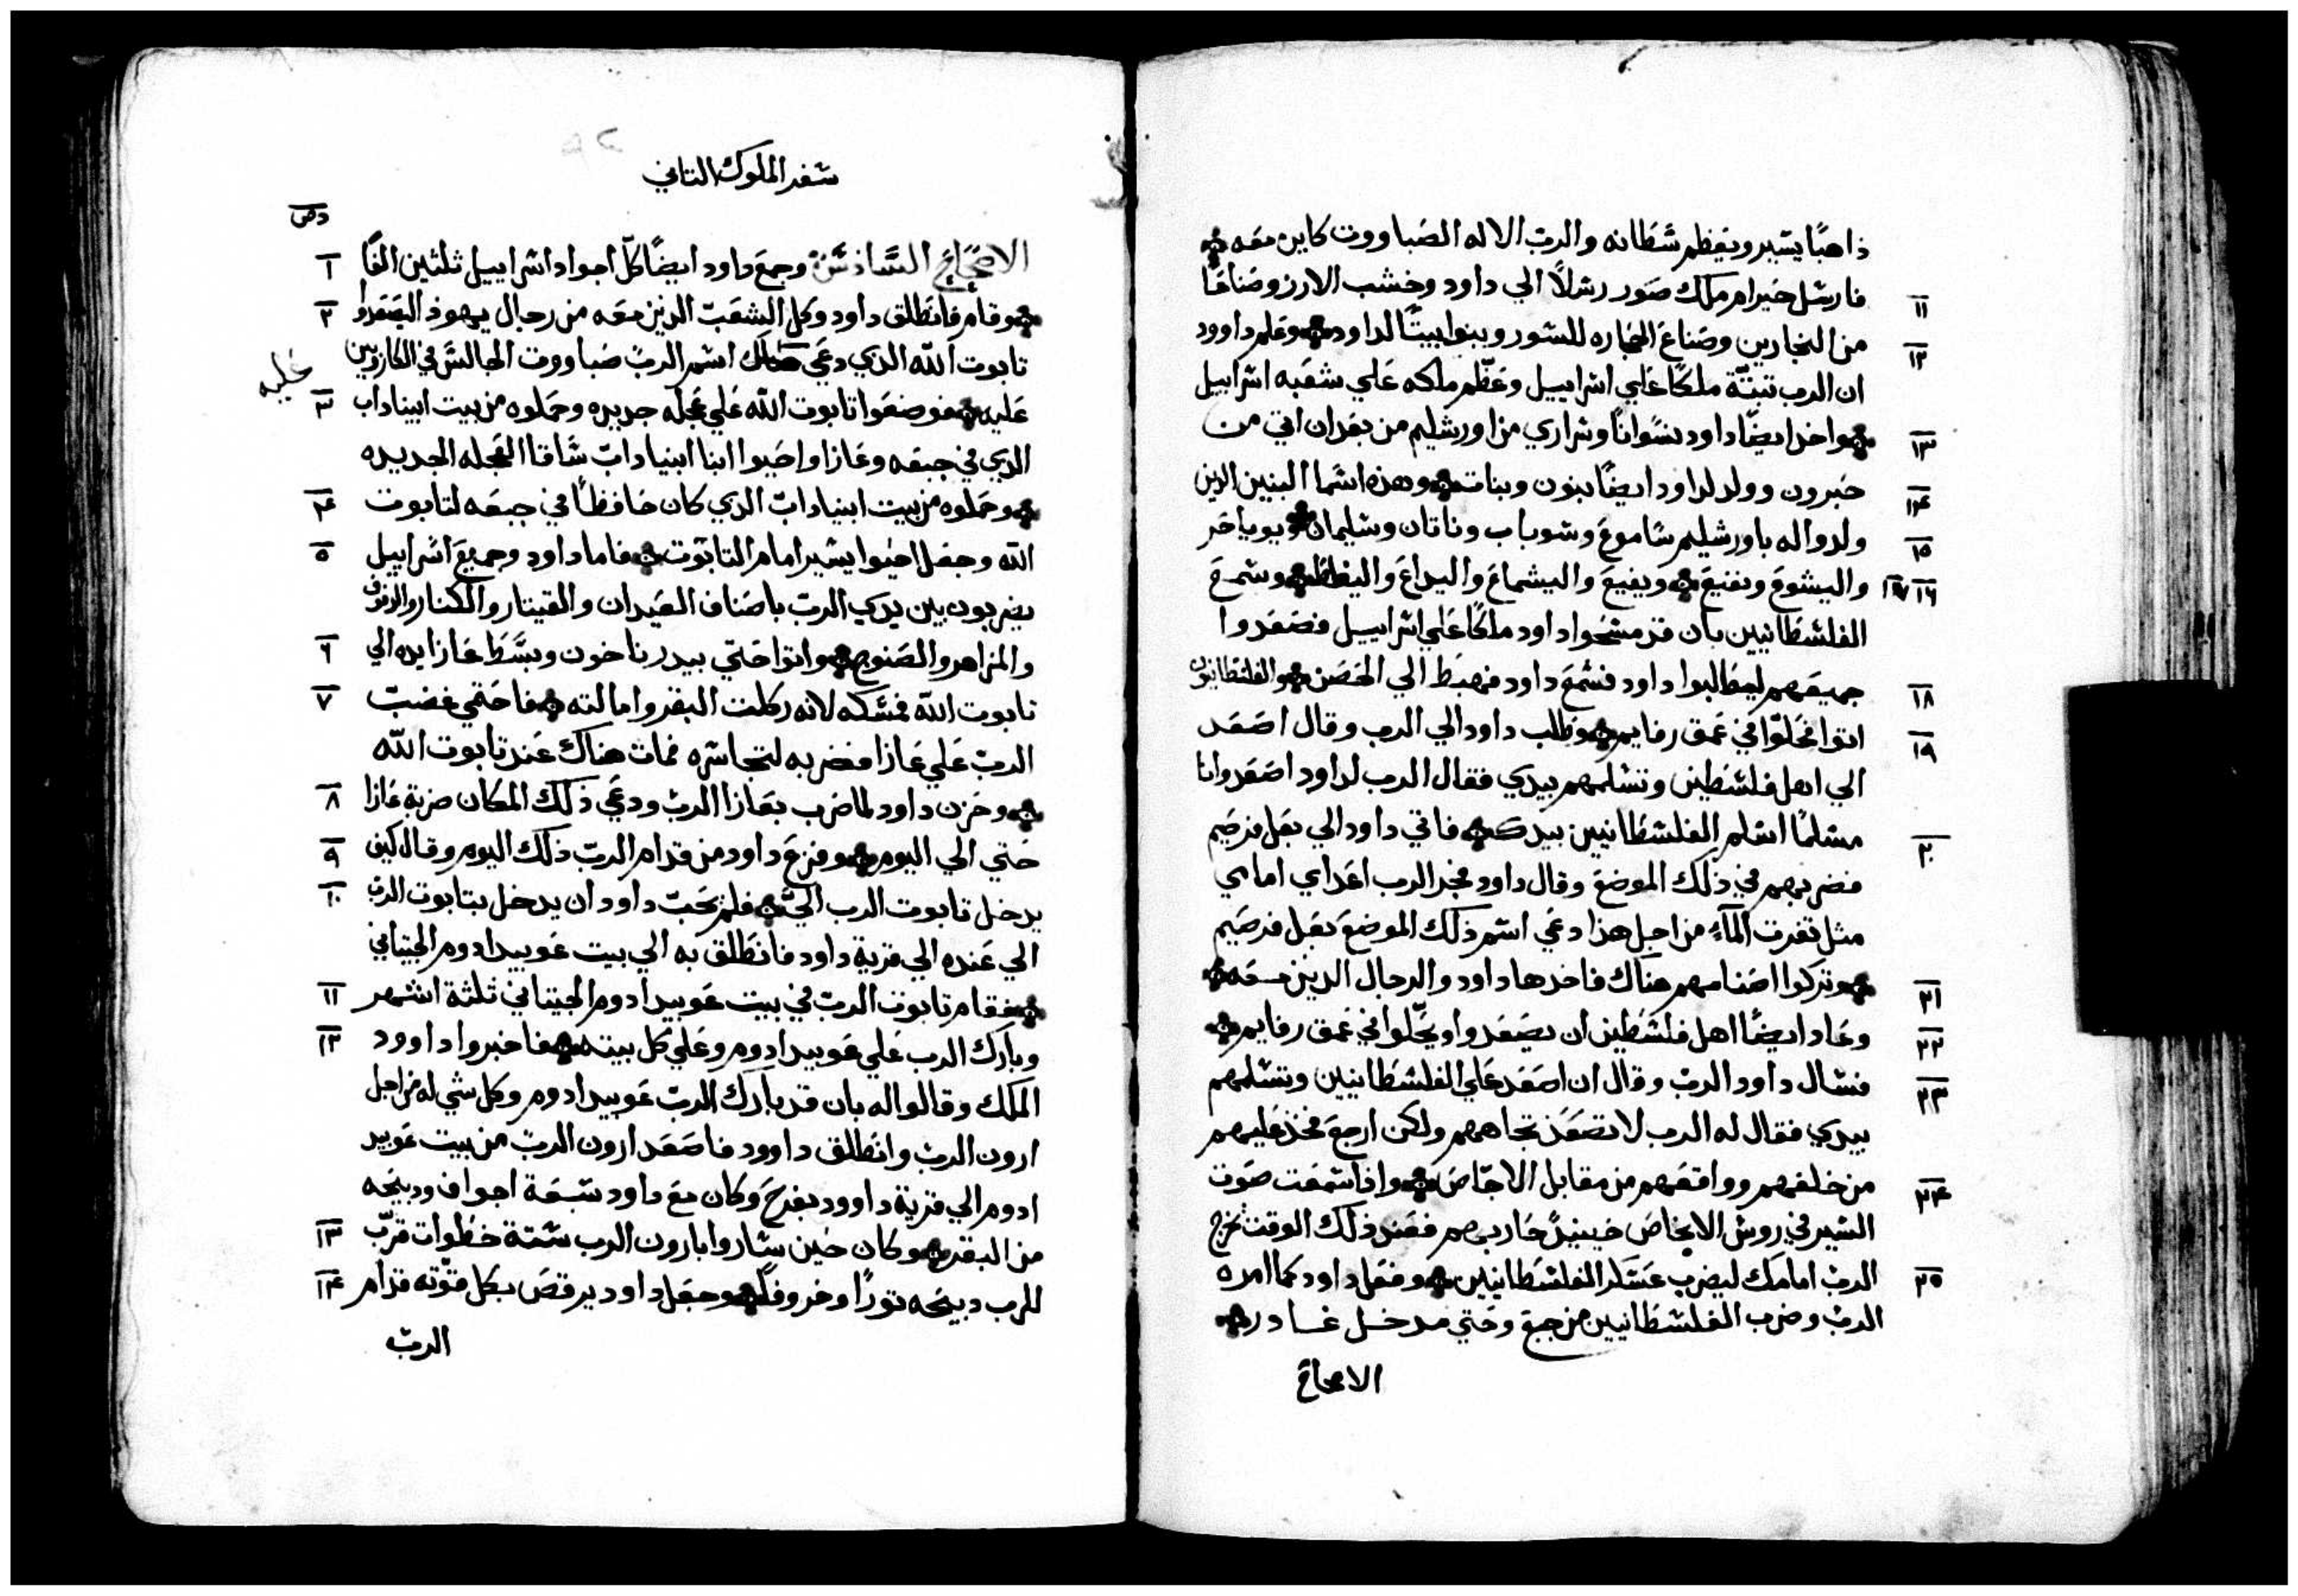 ذاهبًا يسير ويعظم شطانه والرب الاله الصباووت كاين معه
١١ فارسل حيرام ملك صور رسلًا الي داود وخشب الارز وصناعًا
١٢ من النجارين وصناع الحجاره للسور وبنوا بيتًا لداود وعلم داوود
ان الرب تبته ملكًا علي اسراييل وعظم ملكه علي شعبه اسراييل
١٣ واخد ايضًا داود نسوانًا وسراري من اورشليم من بعد ان اتي من
١٤ حبرون وولد لداود ايضًا بنون وبنات وهذه اسما البنين الدين
١٥ ولدوا له باورشليم ساموع وسوباب وناتان وسليمان ويوباحر
١٦ ١٧ واليسوع ونفيع ويفيع واليسماع واليداع واليفلط وسمع
الفلسطانيين بان قد مسحوا داود ملكًا علي اسراييل فصعدوا
١٨ جميعهم ليطالبوا داود فسمع داود فهبط الي الحصن والفلسطانيون
١٩ اتوا فحلّوا في عمق رفايم وطلب داود الي الرب وقال اصعد
الي اهل فلسطين وتسلمهم بيدي فقال الرب لداود اصعد وانا
٢٠ مسلمًا اسلم الفلسطانيين بيدك فاتي داود الي بعل فرصيم
فضربهم في ذلك الموضع وقال داود فجر الرب اعداي امامي
مثل تفرت المآء من اجل هذا دعي اسم ذلك الموضع بعل فرصيم
٢١ وتركوا اصنامهم هناك فاخدها داود والرجال الدين معه
٢٢ وعاد ايضًا اهل فلسطين ان يصعدوا ويحلّوا في عمق رفايم
٢٣ فسال داود الرب وقال ان اصعد علي الفلسطانيين وتسلمهم
بيدي فقال له الرب لا تصعد تجاههم ولكن ارجع فخذ عليهم
٢٤ من خلفهم وواقعهم من مقابل الاجّاص واذا سمعت صوت
السير في روس الانجاص حينيدً حاربهم فعند ذلك الوقت يخرج
٢٥ الرب امامك ليضرب عسكر الفلسطانيين وفعل داود كما امره
الرب وضرب الفلسطانيين من جبع وحتي مدخل غادر
الاصحاح
سفر الملوك التاني
الاصحاح السادس وجمع داود ايضًا كلّ اجواد اسراييل ثلثين الفًا ١
وقام فانطلق داود وكل الشعب الدين معه من رجال يهوذ اليصعدوا ٢
تابوت الله الدي دعي اسم الرب صباووت الجالس في الكاروبين
عليه
عليه فوضعوا تابوت الله علي عجله جديده وحملوه من بيت ابيناداب ٣
الدي في جبعه وعازا واحيوا ابنا ابنياداب ساقا العجله الجديده
وحملوه من بيت ابنياداب الدي كان حافظًا في جبعه لتابوت ٤
الله وجعل احيوا يسير امام التابوت فاما داود وجميع اسراييل ٥
يضربون بين يدي الرب باصناف العيدان والقيتار والكنار والدفوف
والمزاهر والصنوج واتوا حتي بيدر ناخون وبسّط عازا يده الي ٦
تابوت الله فمسكه لانه ركلت البقر وامالته فاحتمي غضب ٧
الرب علي عازا فضربه لتجاسره فمات هناك عند تابوت الله
وحزن داود لما ضرب بعازا الرب ودعي ذلك المكان ضربة عازا ٨
حتي الي اليوم وفزع داود من قدام الرب ذلك اليوم وقال كيف ٩
يدخل تابوت الرب اليّ فلم يحب داود ان يدخل بتابوت الرب ١٠
الي عنده الي قرية داود فانطلق به الي بيت عوبيد ادوم الجيتاني
فقام تابوت الرب في بيت عوبيد ادوم الجيتاني ثلثة اشهر ١١
وبارك الرب علي عوبيد ادوم وعلي كل بيته فاخبروا داوود ١٢
الملك وقالوا له بان قد بارك الرب عوبيد ادوم وكل شي له من اجل
ارون الرب وانطلق داوود فاصعد ارون الرب من بيت عوبيد
ادوم الي قرية داوود بفرح وكان مع داود سبعة اجواق ودبيحه
من البقر وكان حين ساروا بارون الرب ستة خطوات قرّب ١٣
للرب دبيحه تورًا وخروفًا وجعل داود يرقص بكل قوّته قدام ١٤
الرب